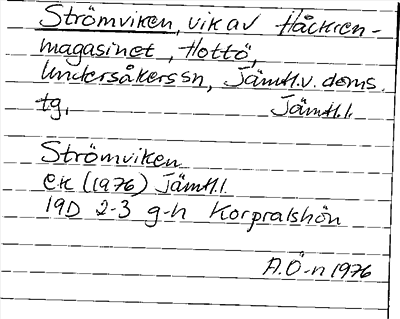 Strömviken, vik av Håckren-
magasinet, Hottö,
Undersåkers sn, Jämtl.v. doms.
tg, Jämtl.l.
Strömviken
ek (1976) Jämtl.l.
19D 2-3 g-h Korpralshön
A.Ö-n 1976